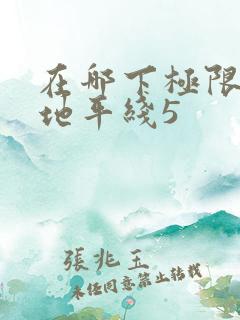 在哪下極限
地平綫5
張兆玉
未經同意禁止轉載